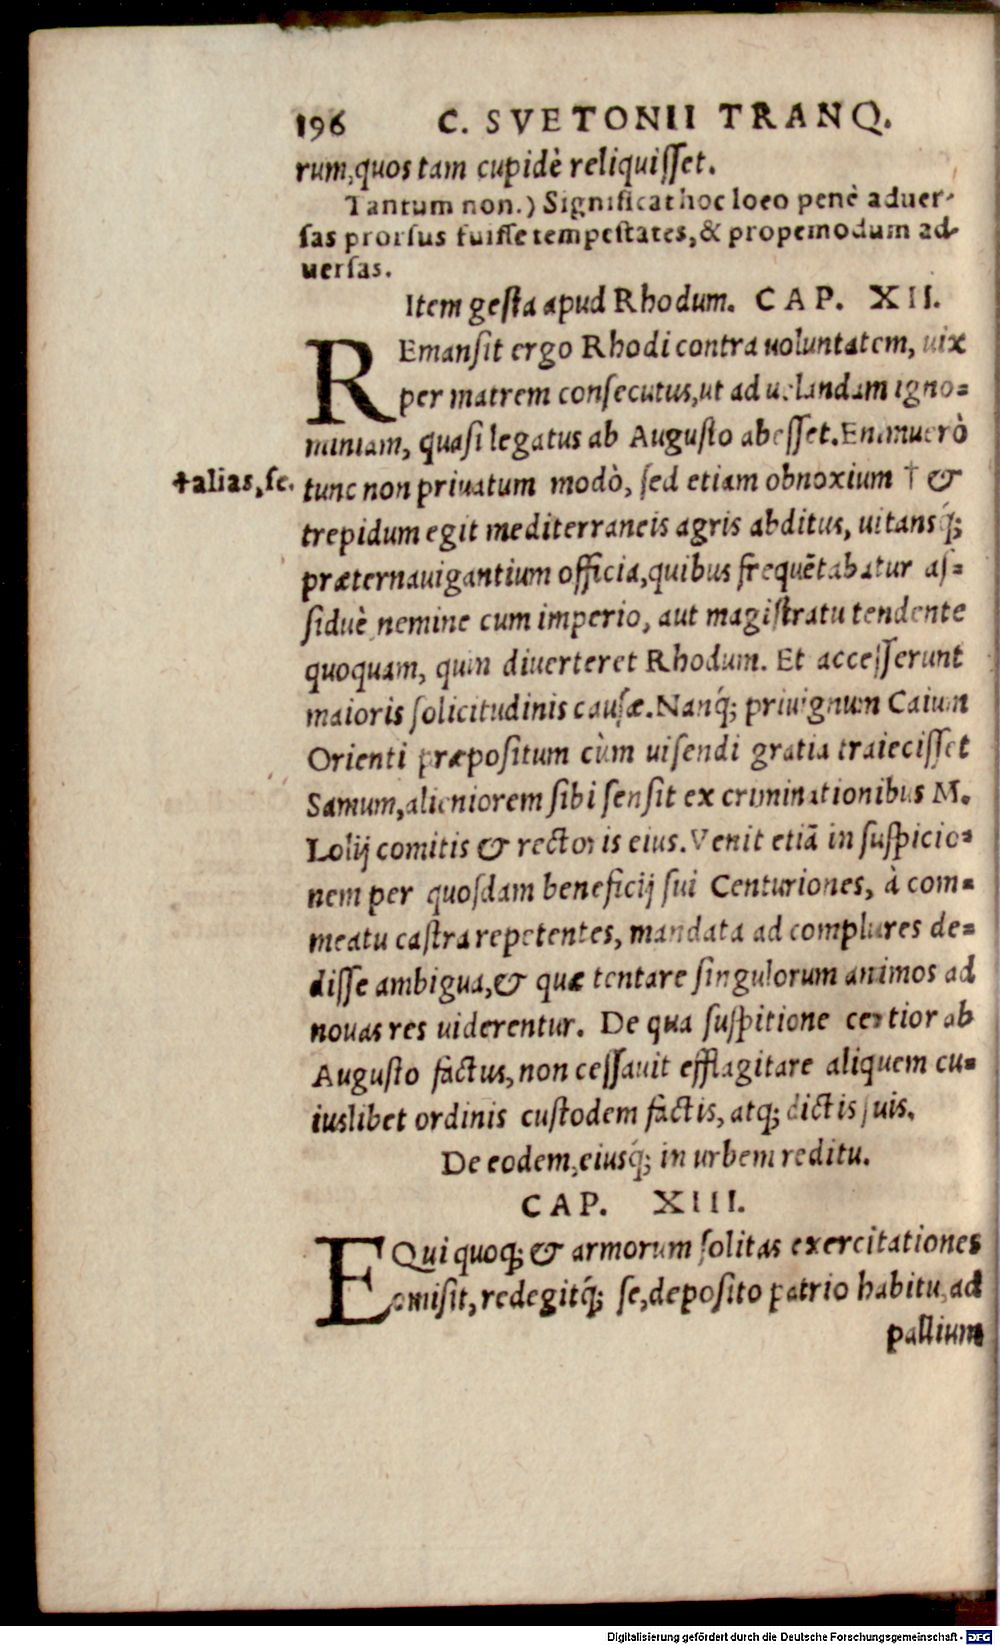 196 C. SVETONII TRANQ.
rum, quos tam cupidè reliquisset.
Tantum non.) Significat hoc loco penè aduer-
sas prorsus fuisse tempestates, & propemodum ad-
uersas.
Item gesta apud Rhodum. CAP. XII.
REmansit ergo Rhodi contra uoluntatem, uix
per matrem consecutus, ut ad uelandam igno=
miniam, quasi legatus ab Augusto abesset. Enimuerò
†alias, se.
tunc non priuatum modò, sed etiam obnoxium † &
trepidum egit mediterraneis agris abditus, uitansq́;
præternauigantium officia, quibus frequẽtabatur as=
siduè nemine cum imperio, aut magistratu tendente
quoquam, quin diuerteret Rhodum. Et accesserunt
maioris solicitudinis causæ. Nanq́; priuignum Caium
Orienti præpositum cùm uisendi gratia traiecisset
Samum, alieniorem sibi sensit ex criminationibus M.
Lolij comitis & rectoris eius. Venit etiã in suspicio=
nem per quosdam beneficij sui Centuriones, à com=
meatu castra repetentes, mandata ad complures de=
disse ambigua, & quæ tentare singulorum animos ad
nouas res uiderentur. De qua suspitione certior ab
Augusto factus, non cessauit efflagitare aliquem cu=
iuslibet ordinis custodem factis, atq; dictis suis.
De eodem, eiusq́; in urbem reditu.
CAP. XIII.
EQui quoq; & armorum solitas exercitationes
omisit, redegitq́; se, deposito patrio habitu, ad
pallium
Digitalisierung gefördert durch die Deutsche Forschungsgemeinschaft - DFG